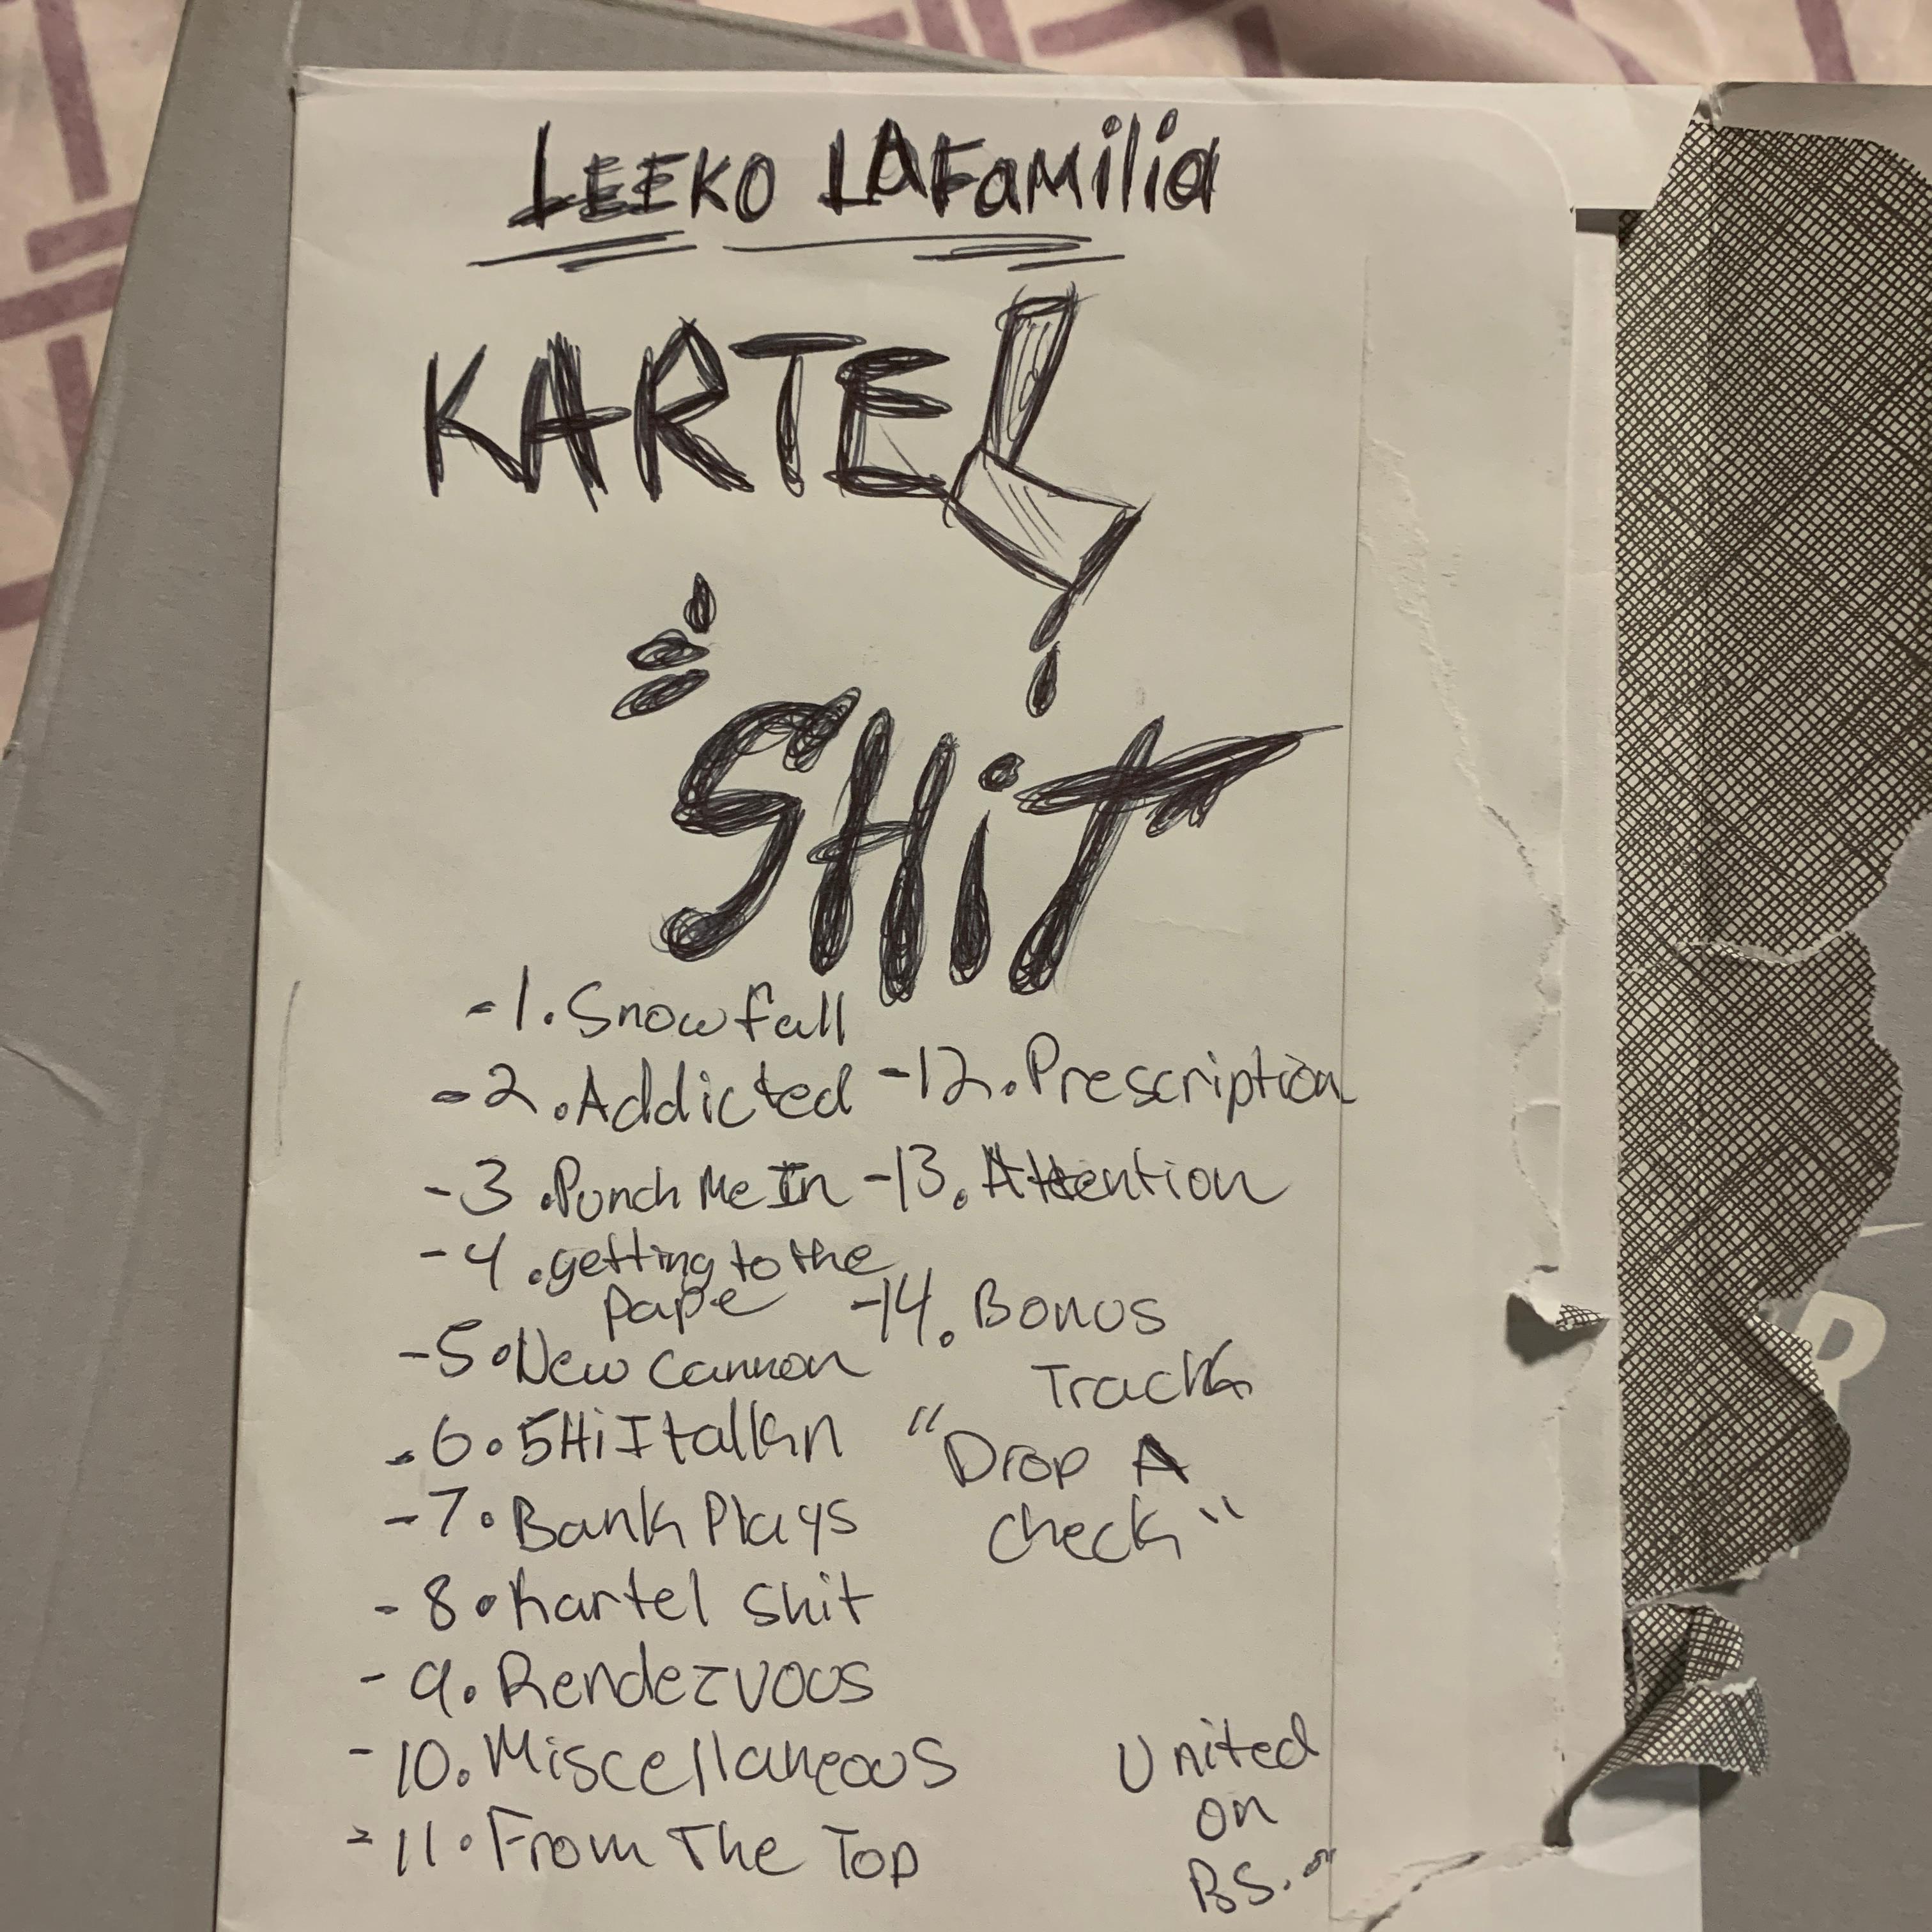 LEEKO LAFamilia
KARTEL
SHiT
-1. Snowfall
-2. Addicted
-3. Punch Me In
-4. getting to the
pape
-5. New Cannon
-6. SHi I talkn
-7. Bank Plays
-8. Kartel Shit
-9. Rendezvous
-10. Miscellaneous
-11. From The Top
-12. Prescription
-13. Attention
-14. Bonus
Track
"Drop A
check"
United
on
BS.